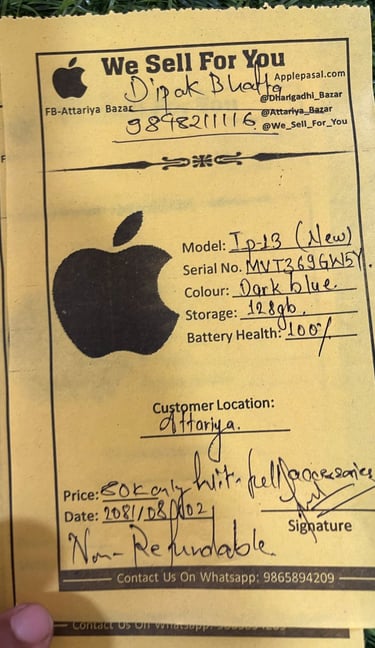 We Sell For You
Applepasal.com
Dipak Bhatta
@Dharigadhi_Bazar
FB-Attariya Bazar
@Attariya_Bazar
9898211116
@We_Sell_For_You
Model: Ip-13 (New)
Serial No. MVT369GW5Y
Colour: Dark blue.
Storage: 128gb.
Battery Health: 100%
Customer Location:
Attariya.
Price: 80K only with full accessories
Date: 2081/08/02
Signature
Non-Refundable
Contact Us On Whatsapp: 9865894209
Contact Us On Whatsapp: